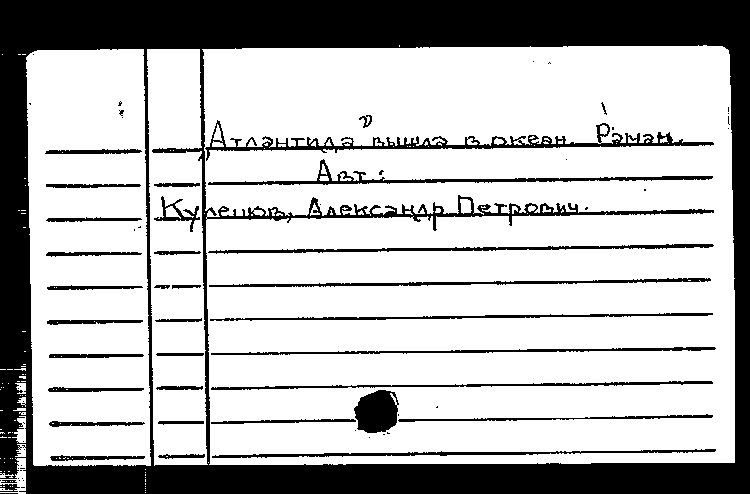 „Атлантида" вышла в океан. Роман.
Авт.:
Кулешов, Александр Петрович.